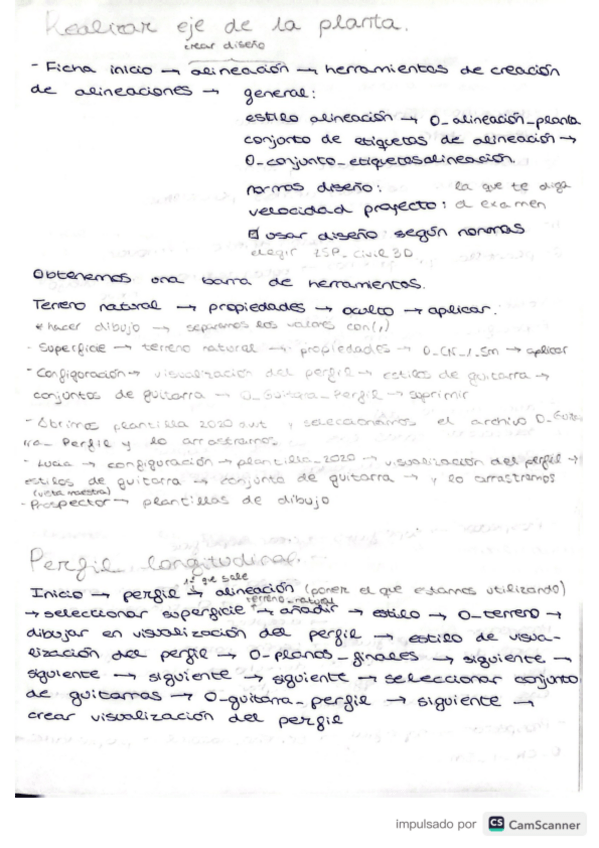 Realizar eje de la planta.
crear diseño
- Ficha inicio → alineación → herramientas de creación
de alineaciones → general:
estilo alineación → 0_alineación_planta
conjunto de etiquetas de alineación →
0_conjunto_etiquetasalineación.
normas diseño: la que te diga
velocidad proyecto: el examen
☑ usar diseño según normas
elegir ISP_civil 3D
Obtenemos una barra de herramientas.
Terreno natural → propiedades → oculto → aplicar.
* hacer dibujo → separamos los valores con (,)
- Superficie → terreno natural → propiedades → 0_CN_1_5m → aplicar
- Configuración → visualización del perfil → estilos de guitarra →
conjuntos de guitarra → 0_Guitarra_Perfil → suprimir
- Abrimos plantilla 2020 y seleccionamos el archivo 0_Guita
rra_Perfil y lo arrastramos.
- Lucia → configuración → plantilla_2020 → visualización del perfil →
estilos de guitarra → conjunto de guitarra → y lo arrastramos
(vista maestra)
- Prospector → plantillas de dibujo
Perfil longitudinal.
1º que sale
Inicio → perfil → alineación (poner el que estamos utilizando)
terreno_natural
→ seleccionar superficie → añadir → estilo → 0-terreno →
dibujar en visualización del perfil → estilo de visua-
lización del perfil → 0-planos_finales → siguiente →
siguiente → siguiente → siguiente → seleccionar conjunto
de guitarras → 0-guitarra_perfil → siguiente →
crear visualización del perfil
impulsado por CS CamScanner